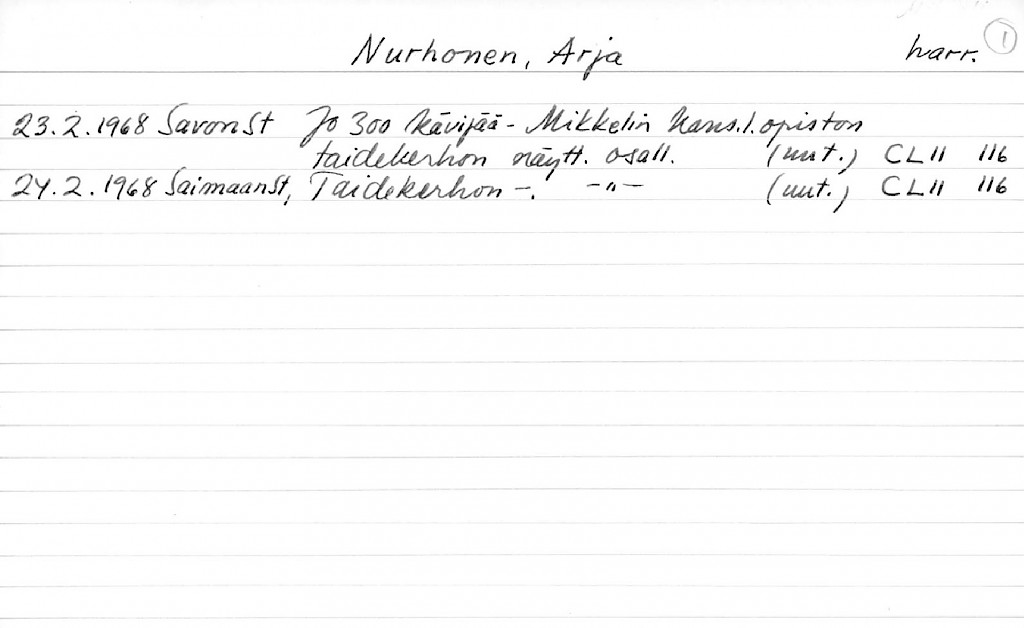 Nurhonen, Arja harr. 1
23.2.1968 SavonSt Jo 300 kävijää - Mikkelin kans.l.opiston
taidekerhon näytt. osall. (uut.) CLII 116
24.2.1968 SaimaanSt, Taidekerhon -. -"- (uut.) CLII 116